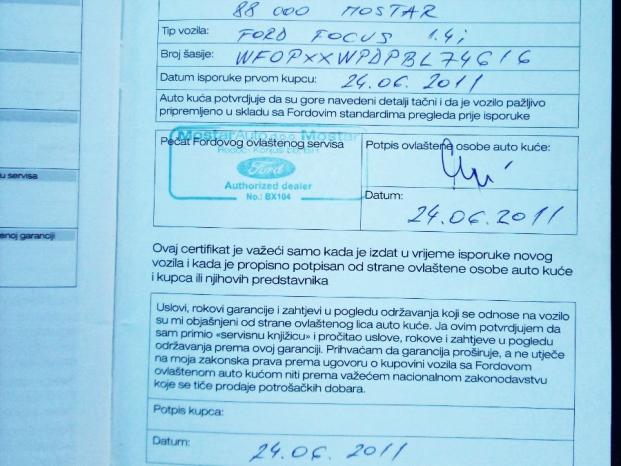 88 000 MOSTAR
Tip vozila: FORD FOCUS 1.4i
Broj šasije: WFOPXXWPDPBL74616
Datum isporuke prvom kupcu: 24.06.2011
Auto kuća potvrdjuje da su gore navedeni detalji tačni i da je vozilo pažljivo
pripremljeno u skladu sa Fordovim standardima pregleda prije isporuke
Pečat Fordovog ovlaštenog servisa
MostarAuto d.o.o. Mostar
Ford
Authorized dealer
No.: BX104
Potpis ovlaštene osobe auto kuće:
Datum:
24.06.2011
u servisa
enoj garanciji
Ovaj certifikat je važeći samo kada je izdat u vrijeme isporuke novog
vozila i kada je propisno potpisan od strane ovlaštene osobe auto kuće
i kupca ili njihovih predstavnika
Uslovi, rokovi garancije i zahtjevi u pogledu održavanja koji se odnose na vozilo
su mi objašnjeni od strane ovlaštenog lica auto kuće. Ja ovim potvrdjujem da
sam primio «servisnu knjižicu» i pročitao uslove, rokove i zahtjeve u pogledu
održavanja prema ovoj garanciji. Prihvaćam da garancija proširuje, a ne utječe
na moja zakonska prava prema ugovoru o kupovini vozila sa Fordovom
ovlaštenom auto kućom niti prema važećem nacionalnom zakonodavstvu
koje se tiče prodaje potrošačkih dobara.
Potpis kupca:
Datum: 24.06.2011